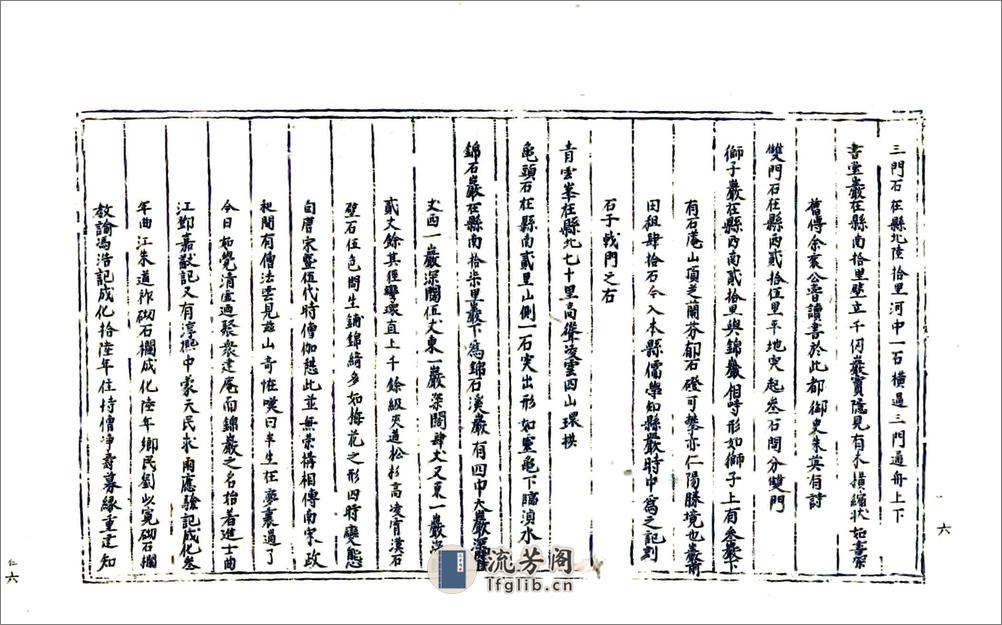 三門石在縣北陸拾里河中一石橫過三門通舟上下
書堂巖在縣南拾里壁立千仞巖竇隱見有木橫縮狀如書架
舊傳余襄公嘗讀書於此都御史朱英有詩
雙門石在縣西貳拾伍里平地突起叁石間分雙門
獅子巖在縣西南貳拾里與錦巖相峙形如獅子上有叁巖下
有石庵山頂芝蘭芬郁石磴可攀亦仁陽勝境也巖前
田租肆拾石今入本縣儒學知縣嚴時中為之記刻
石于戟門之右
青雲峯在縣北七十里高聳凌雲四山環拱
龜頭石在縣南貳里山側一石突出形如靈龜下臨湞水
錦石巖在縣南拾柒里巖下為錦石溪巖有四中大巖深
丈西一巖深闊伍丈東一巖深闊肆丈又東一巖深
貳丈餘其徑彎環直上千餘級夾道松杉高凌霄漢石
壁石伍色間生鋪錦綺多如梅花之形四時變態
自唐宋暨伍代時僧伽憩此並無崇構相傳南宋政
和間有僧法雲見茲山奇恠嘆曰半生在夢裏過了
今日始覺清虛過聚衆建庵而錦巖之名始著進士曲
江鄧嘉猷記又有淳熙中蒙天民求雨應驗記成化叁
年曲江朱道祚砌石欄成化陸年鄉民劉以寬砌石欄
教諭馮浩記成化拾陸年住持僧淨壽募緣重建知
六
仁六
流芳阁
lfglib.cn